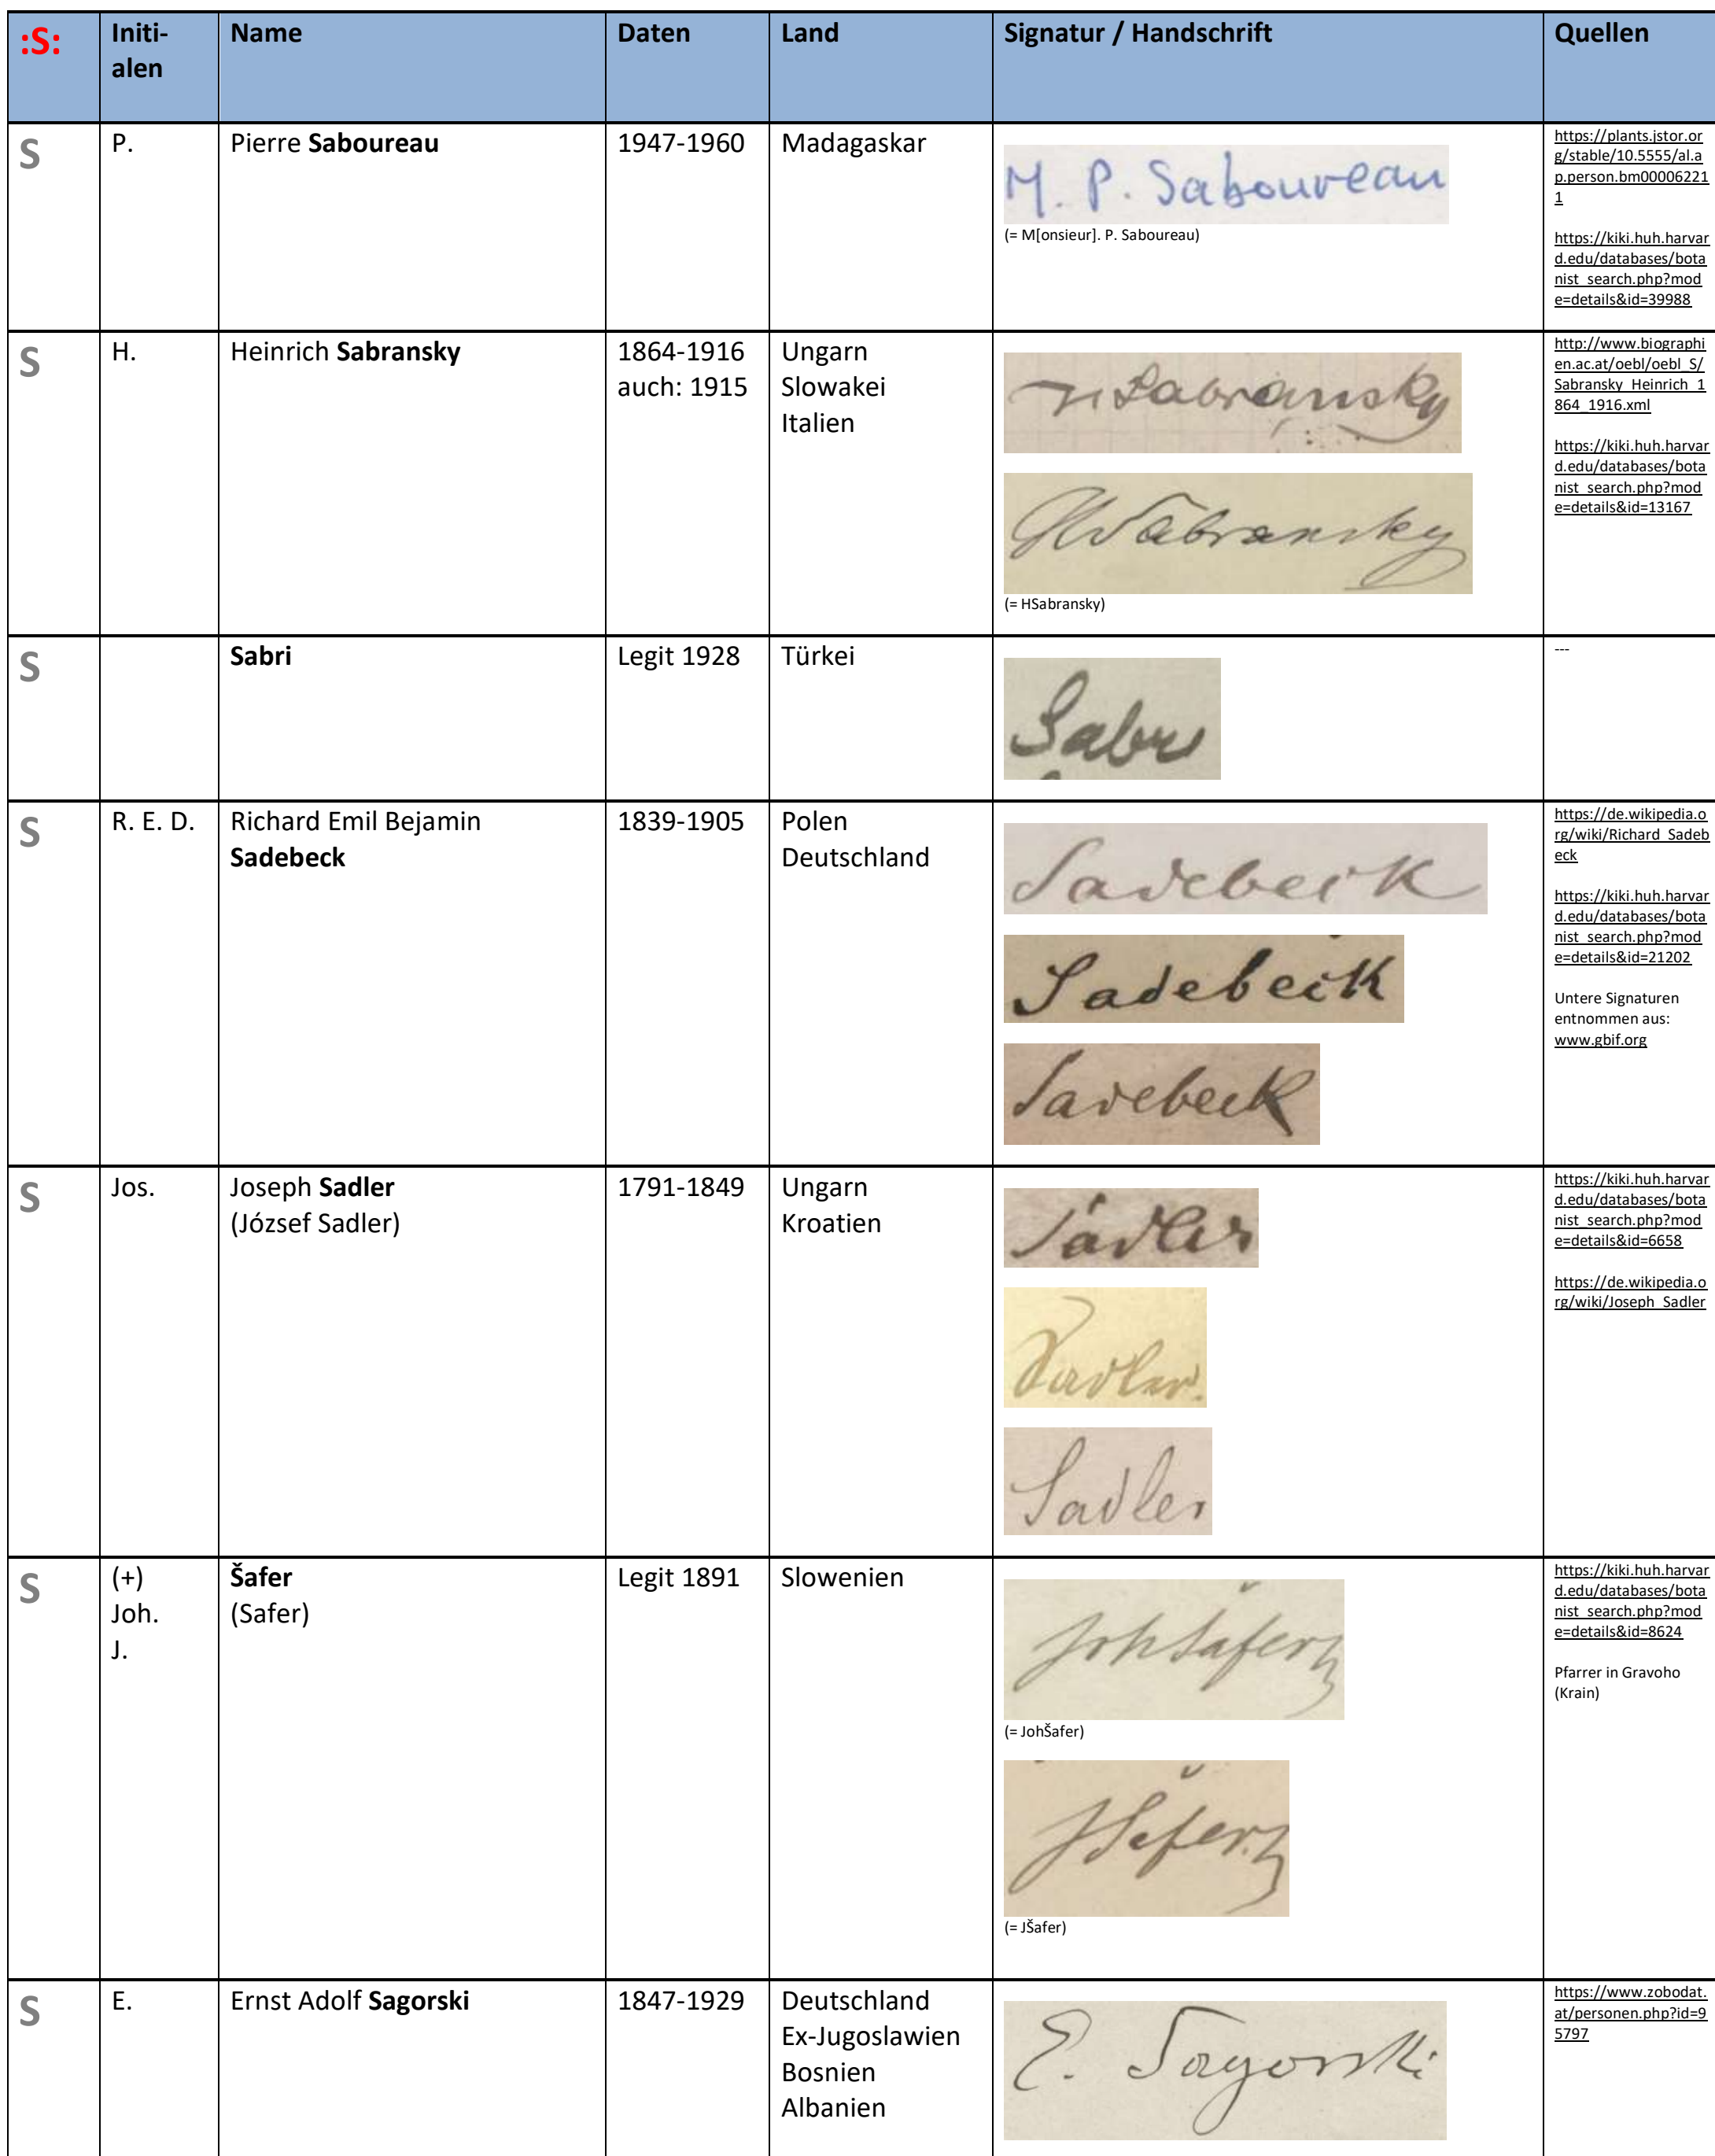 :S:
Initi-
alen
Name
Daten
Land
Signatur / Handschrift
Quellen
S
P.
Pierre Saboureau
1947-1960
Madagaskar
M. P. Saboureau
(= M[onsieur]. P. Saboureau)
https://plants.jstor.or
g/stable/10.5555/al.a
p.person.bm00006221
1
https://kiki.huh.harvar
d.edu/databases/bota
nist_search.php?mod
e=details&id=39988
S
H.
Heinrich Sabransky
1864-1916
auch: 1915
Ungarn
Slowakei
Italien
HSabransky
HSabransky
(= HSabransky)
http://www.biographi
en.ac.at/oebl/oebl_S/
Sabransky_Heinrich_1
864_1916.xml
https://kiki.huh.harvar
d.edu/databases/bota
nist_search.php?mod
e=details&id=13167
S
Sabri
Legit 1928
Türkei
Sabri
---
S
R. E. D.
Richard Emil Bejamin
Sadebeck
1839-1905
Polen
Deutschland
Sadebeck
Sadebeck
Sadebeck
https://de.wikipedia.o
rg/wiki/Richard_Sadeb
eck
https://kiki.huh.harvar
d.edu/databases/bota
nist_search.php?mod
e=details&id=21202
Untere Signaturen
entnommen aus:
www.gbif.org
S
Jos.
Joseph Sadler
(József Sadler)
1791-1849
Ungarn
Kroatien
Sádler
Sadler.
Sadler
https://kiki.huh.harvar
d.edu/databases/bota
nist_search.php?mod
e=details&id=6658
https://de.wikipedia.o
rg/wiki/Joseph_Sadler
S
(+)
Joh.
J.
Šafer
(Safer)
Legit 1891
Slowenien
JohŠafer
(= JohŠafer)
JŠafer
(= JŠafer)
https://kiki.huh.harvar
d.edu/databases/bota
nist_search.php?mod
e=details&id=8624
Pfarrer in Gravoho
(Krain)
S
E.
Ernst Adolf Sagorski
1847-1929
Deutschland
Ex-Jugoslawien
Bosnien
Albanien
E. Sagorski
https://www.zobodat.
at/personen.php?id=9
5797